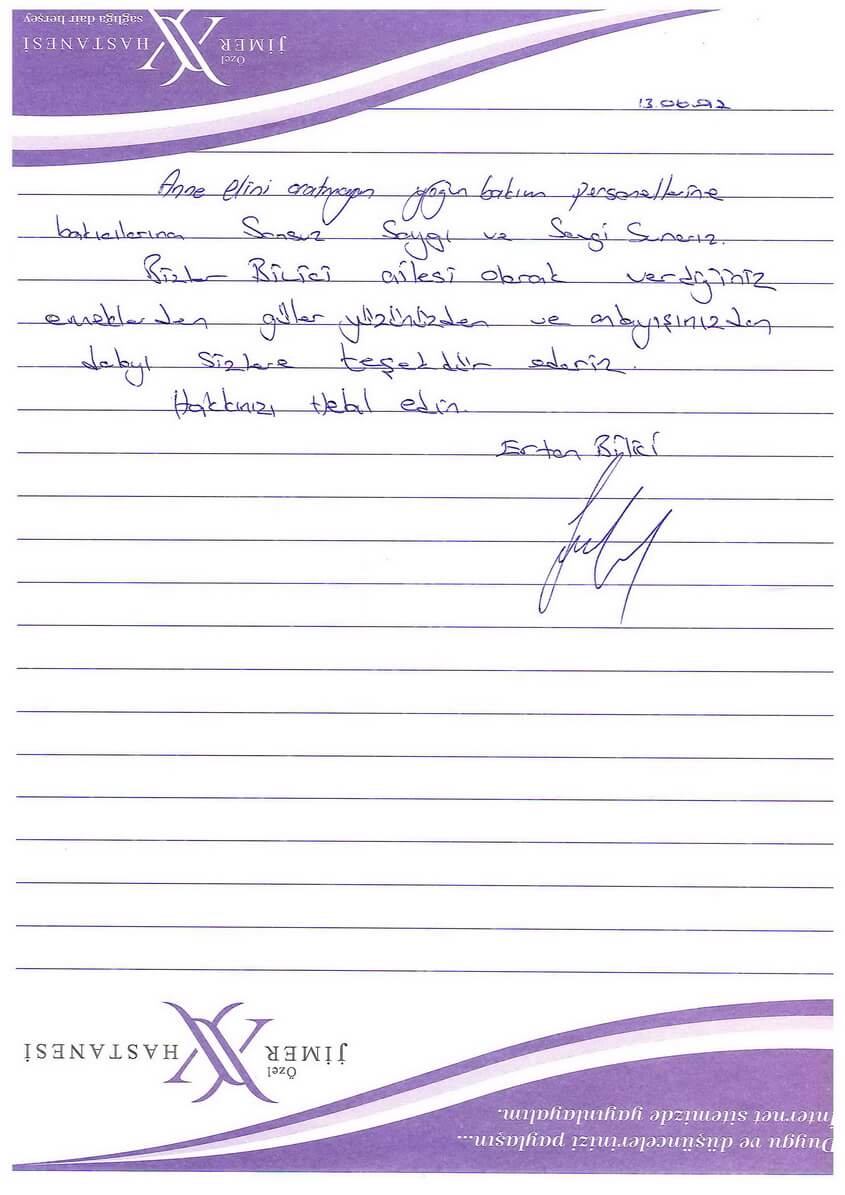 Özel
JİMER HASTANESİ
sağlığa dair herşey
13.06.
Anne elini aratmayan yoğun bakım personellerine
bakıcılarına Sonsuz Saygı ve Sevgi Sunarız.
Bizler Bilici ailesi olarak verdiğiniz
emeklerden güler yüzünüzden ve anlayışınızdan
dolayı sizlere teşekkür ederiz.
Hakkınızı Helal edin.
Ertan Bilici
Özel
JİMER HASTANESİ
Duygu ve düşüncelerinizi paylaşın...
İnternet sitemizde yayınlayalım.